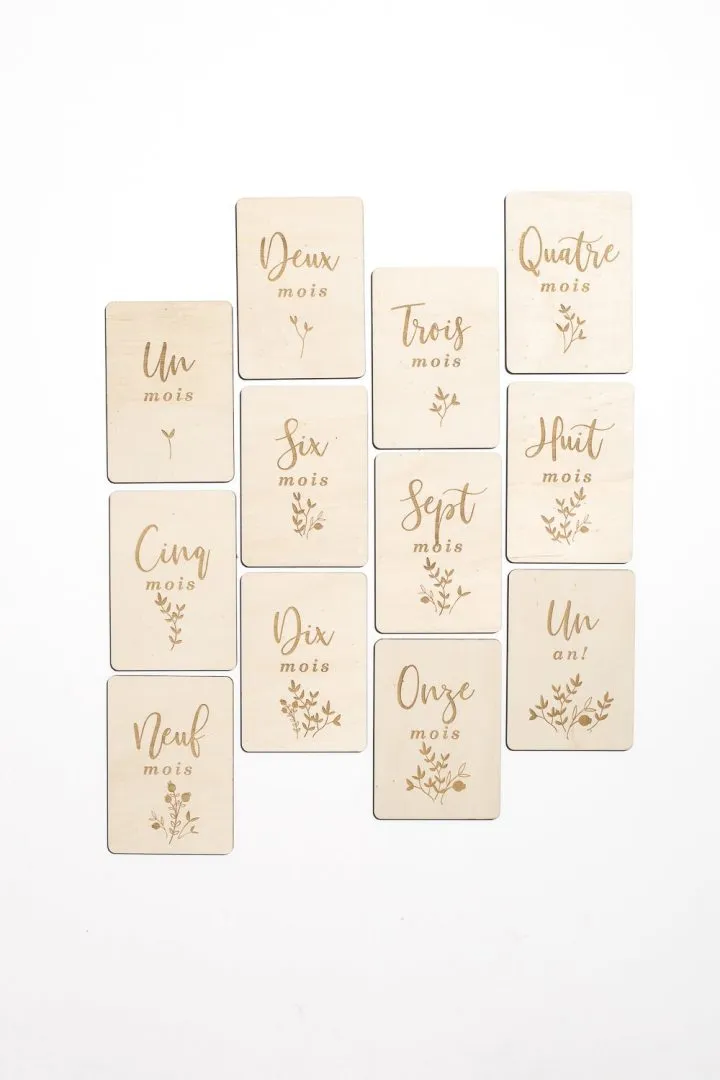 Un
mois
Deux
mois
Trois
mois
Quatre
mois
Cinq
mois
Six
mois
Sept
mois
Huit
mois
Neuf
mois
Dix
mois
Onze
mois
Un
an!